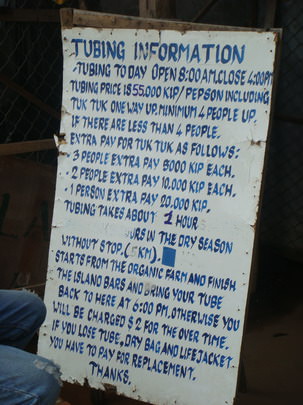 TUBING INFORMATION
-TUBING TO DAY OPEN 8:00AM.CLOSE 4:00PM
TUBING PRICE IS 55.000 KIP/PERSON INCLUDING
TUK TUK ONE WAY UP. MINIMUM 4 PEOPLE UP.
IF THERE ARE LESS THAN 4 PEOPLE.
EXTRA PAY FOR TUK TUK AS FOLLOWS:
-3 PEOPLE EXTRA PAY 5000 KIP EACH.
-2 PEOPLE EXTRA PAY 10.000 KIP EACH.
-1 PERSON EXTRA PAY 20.000 KIP.
TUBING TAKES ABOUT 1 HOURS
IN THE DRY SEASON
WITHOUT STOP. (5KM).
STARTS FROM THE ORGANIC FARM AND FINISH
THE ISLAND BARS AND BRING YOUR TUBE
BACK TO HERE AT 6:00 PM. OTHERWISE YOU
WILL BE CHARGED $ 2 FOR THE OVER TIME.
IF YOU LOSE TUBE, DRY BAG AND LIFE JACKET
YOU HAVE TO PAY FOR REPLACEMENT.
THANKS.